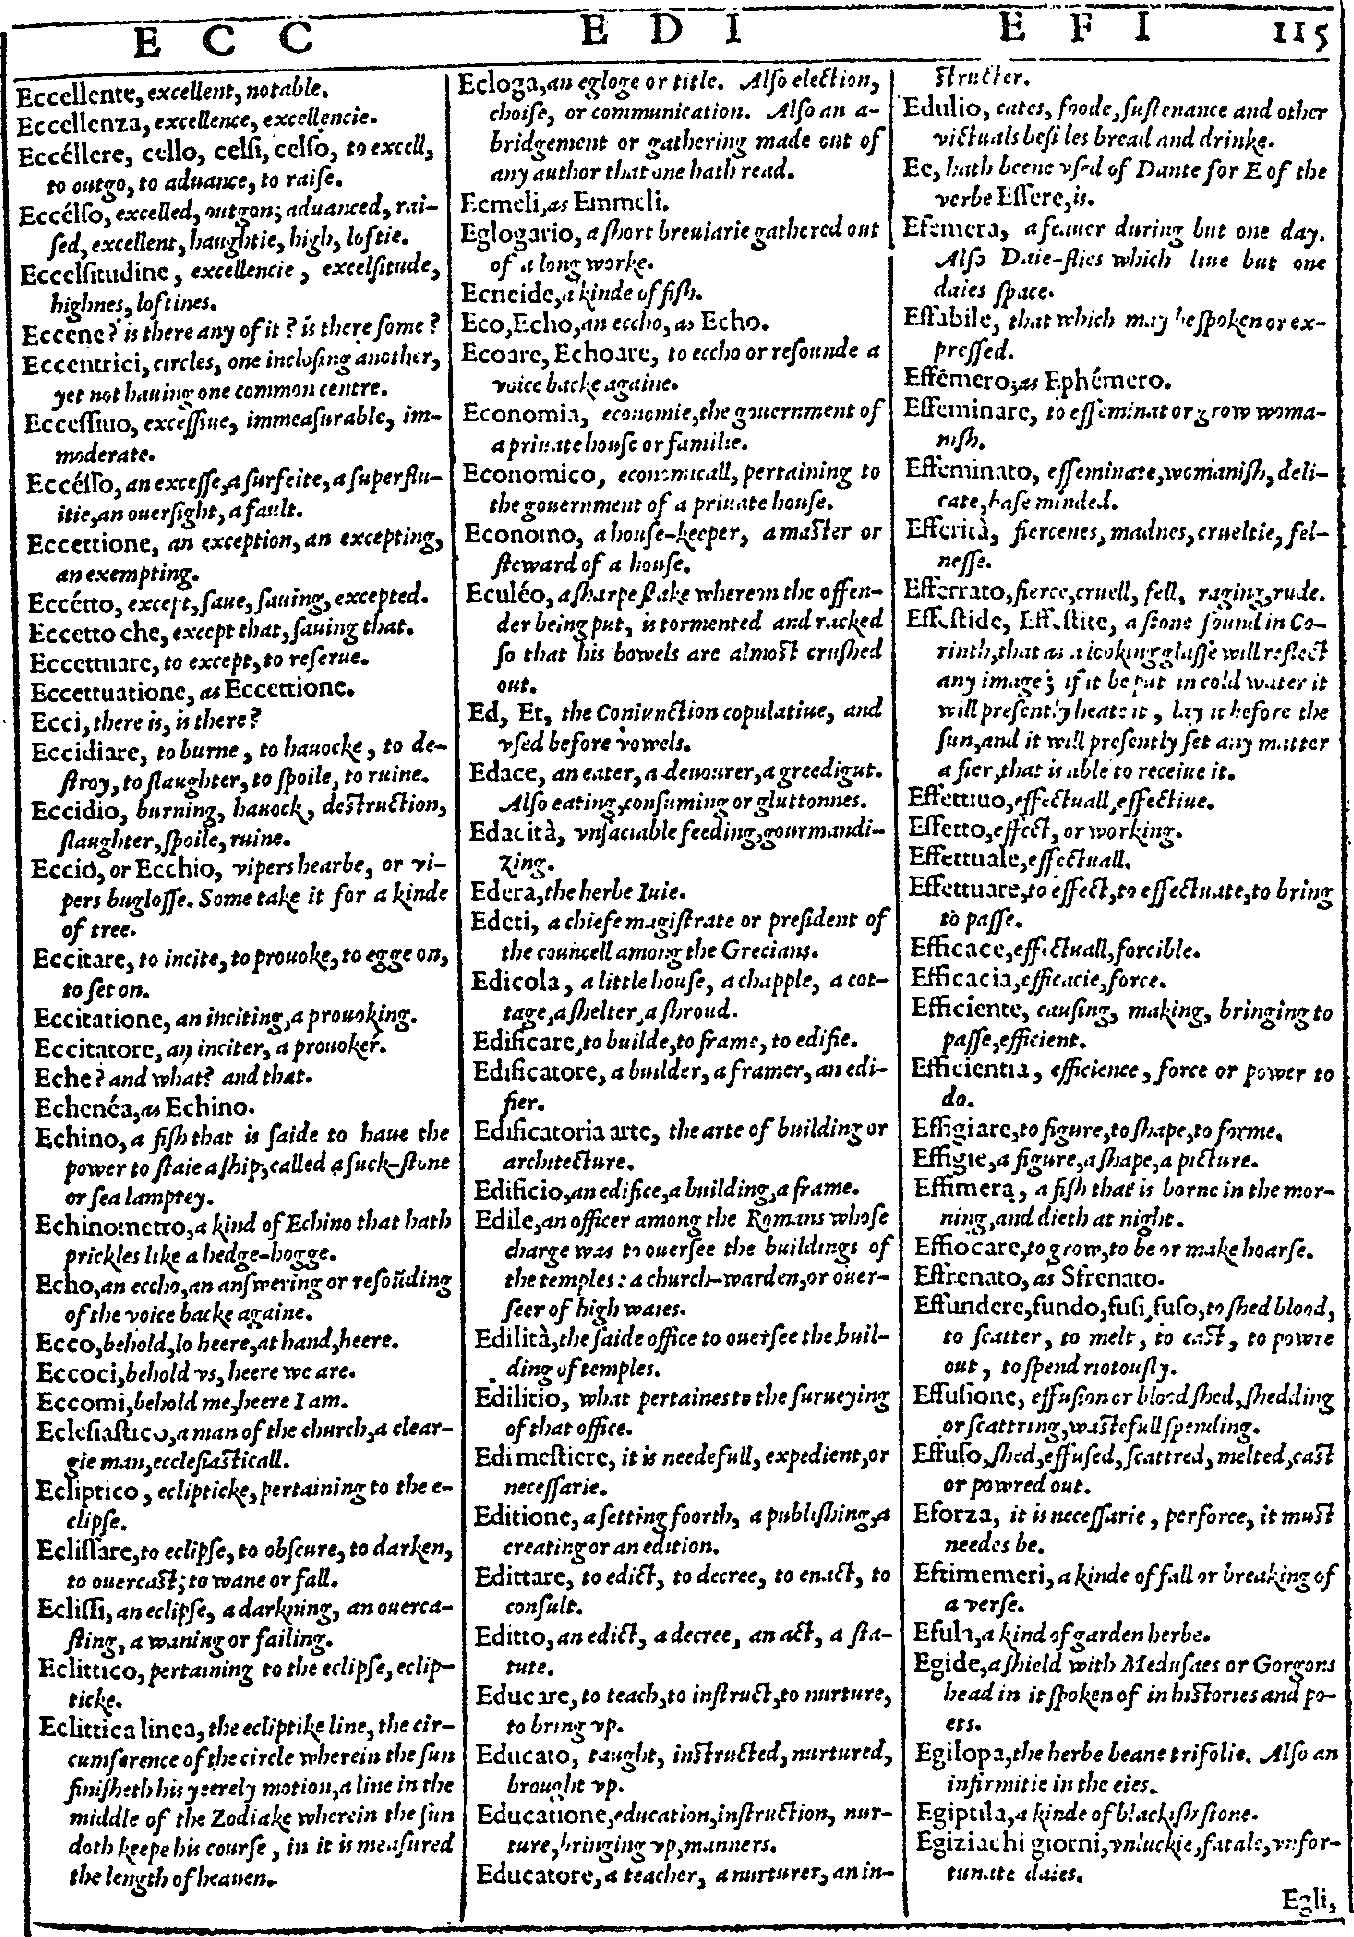 E C C
E D I
E F I
115
Eccellente, excellent, notable.
Eccellenza, excellence, excellencie.
Eccéllere, cello, celſi, celſo, to excell,
to outgo, to aduance, to raiſe.
Eccélſo, excelled, outgon; aduanced, rai-
ſed, excellent, haughtie, high, loftie.
Eccelſitudine, excellencie, excelſitude,
highnes, loftines.
Eccene? is there any of it? is there ſome?
Eccentrici, circles, one incloſing another,
yet not hauing one common centre.
Eccesſiuo, exceſſiue, immeaſurable, im-
moderate.
Eccéſſo, an exceſſe, a ſurfeite, a ſuperflu-
itie, an ouerſight, a fault.
Eccettione, an exception, an excepting,
an exempting.
Eccétto, except, ſaue, ſauing, excepted.
Eccetto che, except that, ſauing that.
Eccettuare, to except, to reſerue.
Eccettuatione, as Eccettione.
Ecci, there is, is there?
Eccidiare, to burne, to hauocke, to de-
ſtroy, to ſlaughter, to ſpoile, to ruine.
Eccidio, burning, hauock, deſtruction,
ſlaughter, ſpoile, ruine.
Eccio, or Ecchio, vipers hearbe, or vi-
pers bugloſſe. Some take it for a kinde
of tree.
Eccitare, to incite, to prouoke, to egge on,
to ſet on.
Eccitatione, an inciting, a prouoking.
Eccitatore, an inciter, a prouoker.
Eche? and what? and that.
Echenéa, as Echino.
Echino, a fiſh that is ſaide to haue the
power to ſtaie a ſhip, called a ſuck-ſtone
or ſea lamprey.
Echinometro, a kind of Echino that hath
prickles like a hedge-hogge.
Echo, an eccho, an anſwering or reſoūding
of the voice backe againe.
Ecco, behold, lo heere, at hand, heere.
Eccoci, behold vs, heere we are.
Eccomi, behold me, heere I am.
Ecleſiaſtico, a man of the church, a clear-
gie man, eccleſiaſticall.
Ecliptico, eclipticke, pertaining to the e-
clipſe.
Ecliſſare, to eclipſe, to obſcure, to darken,
to ouercaſt; to wane or fall.
Ecliſſi, an eclipſe, a darkning, an ouerca-
ſting, a waning or failing.
Eclittico, pertaining to the eclipſe, eclip-
ticke.
Eclittica linea, the ecliptike line, the cir-
cumference of the circle wherein the ſun
finiſheth his yeerely motion, a line in the
middle of the Zodiake wherein the ſun
doth keepe his courſe, in it is meaſured
the length of heauen.
Ecloga, an egloge or title. Alſo election,
choiſe, or communication. Alſo an a-
bridgement or gathering made out of
any author that one hath read.
Ecmeli, as Emmeli.
Eglogario, a ſhort breuiarie gathered out
of a long worke.
Ecneide, a kinde of fiſh.
Eco, Echo, an eccho, as Echo.
Ecoare, Echoare, to eccho or reſounde a
voice backe againe.
Economia, economie, the gouernment of
a priuate houſe or familie.
Economico, economicall, pertaining to
the gouernment of a priuate houſe.
Economo, a houſe-keeper, a maſter or
ſteward of a houſe.
Eculéo, a ſharpe ſtake wherein the offen-
der being put, is tormented and racked
ſo that his bowels are almoſt cruſhed
out.
Ed, Et, the Coniunction copulatiue, and
vſed before vowels.
Edace, an eater, a deuourer, a greedigut.
Alſo eating, conſuming or gluttonnes.
Edacità, vnſaciable feeding, gourmandi-
zing.
Edera, the herbe Iuie.
Edeti, a chiefe magiſtrate or preſident of
the councell among the Grecians.
Edicola, a little houſe, a chapple, a cot-
tage, a ſhelter, a ſhroud.
Edificare, to builde, to frame, to edifie.
Edificatore, a builder, a framer, an edi-
fier.
Edificatoria arte, the arte of building or
architecture.
Edificio, an edifice, a building, a frame.
Edile, an officer among the Romans whoſe
charge was to ouerſee the buildings of
the temples: a church-warden, or ouer-
ſeer of high waies.
Edilità, the ſaide office to ouerſee the buil-
ding of temples.
Edilitio, what pertaines to the ſurueying
of that office.
Edimeſtiere, it is needefull, expedient, or
neceſſarie.
Editione, a ſetting foorth, a publiſhing, a
creating or an edition.
Edittare, to edict, to decree, to enact, to
conſult.
Editto, an edict, a decree, an act, a ſta-
tute.
Educare, to teach, to inſtruct, to nurture,
to bring vp.
Educato, taught, inſtructed, nurtured,
brought vp.
Educatione, education, inſtruction, nur-
ture, bringing vp, manners.
Educatore, a teacher, a nurturer, an in-
ſtructer.
Edulio, cates, foode, ſuſtenance and other
victuals beſides bread and drinke.
Ee, hath beene vſed of Dante for E of the
verbe Eſſere, is.
Efemera, a feauer during but one day.
Alſo Daie-flies which liue but one
daies ſpace.
Effabile, that which may be ſpoken or ex-
preſſed.
Effémero, as Ephémero.
Effeminare, to effeminat or grow woma-
niſh.
Effeminato, effeminate, womaniſh, deli-
cate, baſe minded.
Efferità, fiercenes, madnes, crueltie, fel-
neſſe.
Efferrato, fierce, cruell, fell, raging, rude.
Effeſtide, Effeſtite, a ſtone found in Co-
rinth, that as a looking glaſſe will reflect
any image; if it be put in cold water it
will preſently heate it, lay it before the
ſun, and it will preſently ſet any matter
a fier, that is able to receiue it.
Effettiuo, effectuall, effectiue.
Effetto, effect, or working.
Effettuale, effectuall.
Effettuare, to effect, to effectuate, to bring
to paſſe.
Efficace, effectuall, forcible.
Efficacia, efficacie, force.
Efficiente, cauſing, making, bringing to
paſſe, efficient.
Efficientia, efficience, force or power to
do.
Effigiare, to figure, to ſhape, to forme.
Effigie, a figure, a ſhape, a picture.
Effimera, a fiſh that is borne in the mor-
ning, and dieth at night.
Effiocare, to grow, to be or make hoarſe.
Effrenato, as Sfrenato.
Effundere, fundo, fuſi, fuſo, to ſhed blood,
to ſcatter, to melt, to caſt, to powre
out, to ſpend riotouſly.
Effuſione, effuſion or bloodſhed, ſhedding
or ſcattring, waſtefull ſpending.
Effuſo, ſhed, effuſed, ſcattred, melted, caſt
or powred out.
Eforza, it is neceſſarie, perforce, it muſt
needes be.
Eftimemeri, a kinde of fall or breaking of
a verſe.
Efula, a kind of garden herbe.
Egide, a ſhield with Meduſaes or Gorgons
head in it ſpoken of in hiſtories and po-
ets.
Egilopa, the herbe beane trifolie. Alſo an
infirmitie in the eies.
Egiptila, a kinde of blackiſh ſtone.
Egiziachi giorni, vnluckie, fatale, vnfor-
tunate daies.
Egli,